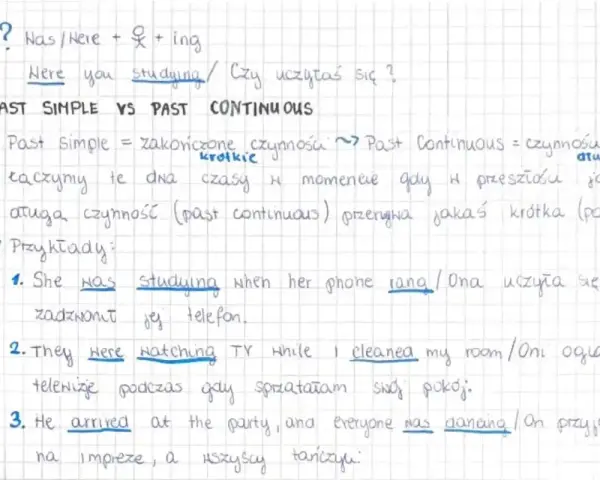 ? Was/Were + + ing
Were you studying / Czy uczyłaś się?
PAST SIMPLE VS PAST CONTINUOUS
Past Simple = zakończone czynności ~> Past Continuous = czynności
krótkie
Łączymy te dwa czasy w momencie gdy w przeszłości
długa czynność (past continuous) przerywa jakaś krótka
Przykłady:
1. She was studying when her phone rang / Ona uczyła się
zadzwonił jej telefon.
2. They were watching TV while I cleaned my room / Oni
telewizje podczas gdy sprzątałam swój pokój.
3. He arrived at the party, and everyone was dancing / On
na impreze, a wszyscy tańczyli.